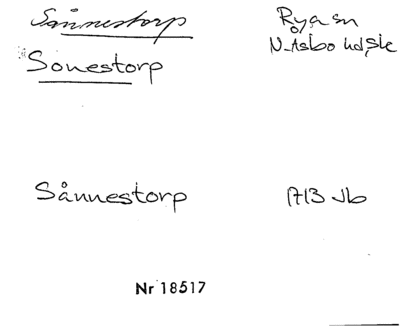 Sånnestorp Rya sn
Sonestorp N. Åsbo hd, Sk
Sånnestorp 1713 Jb
Nr 18517